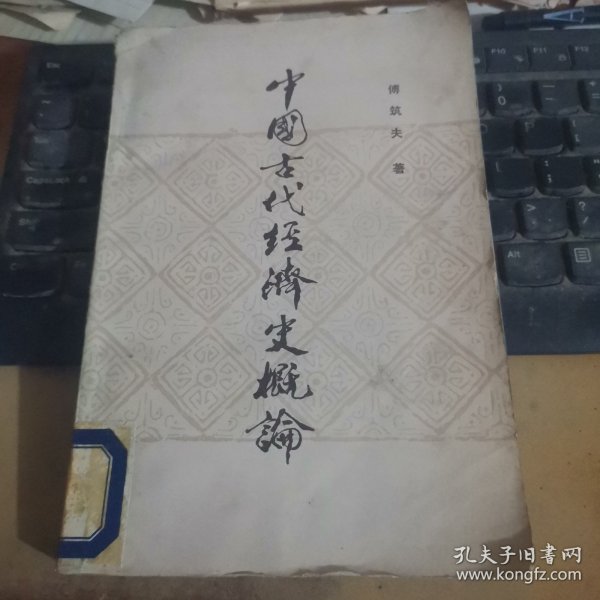 中國古代經濟史概論
傅筑夫 著
Esc
F10
F11
Alt
孔夫子旧書网
www.kongfz.com